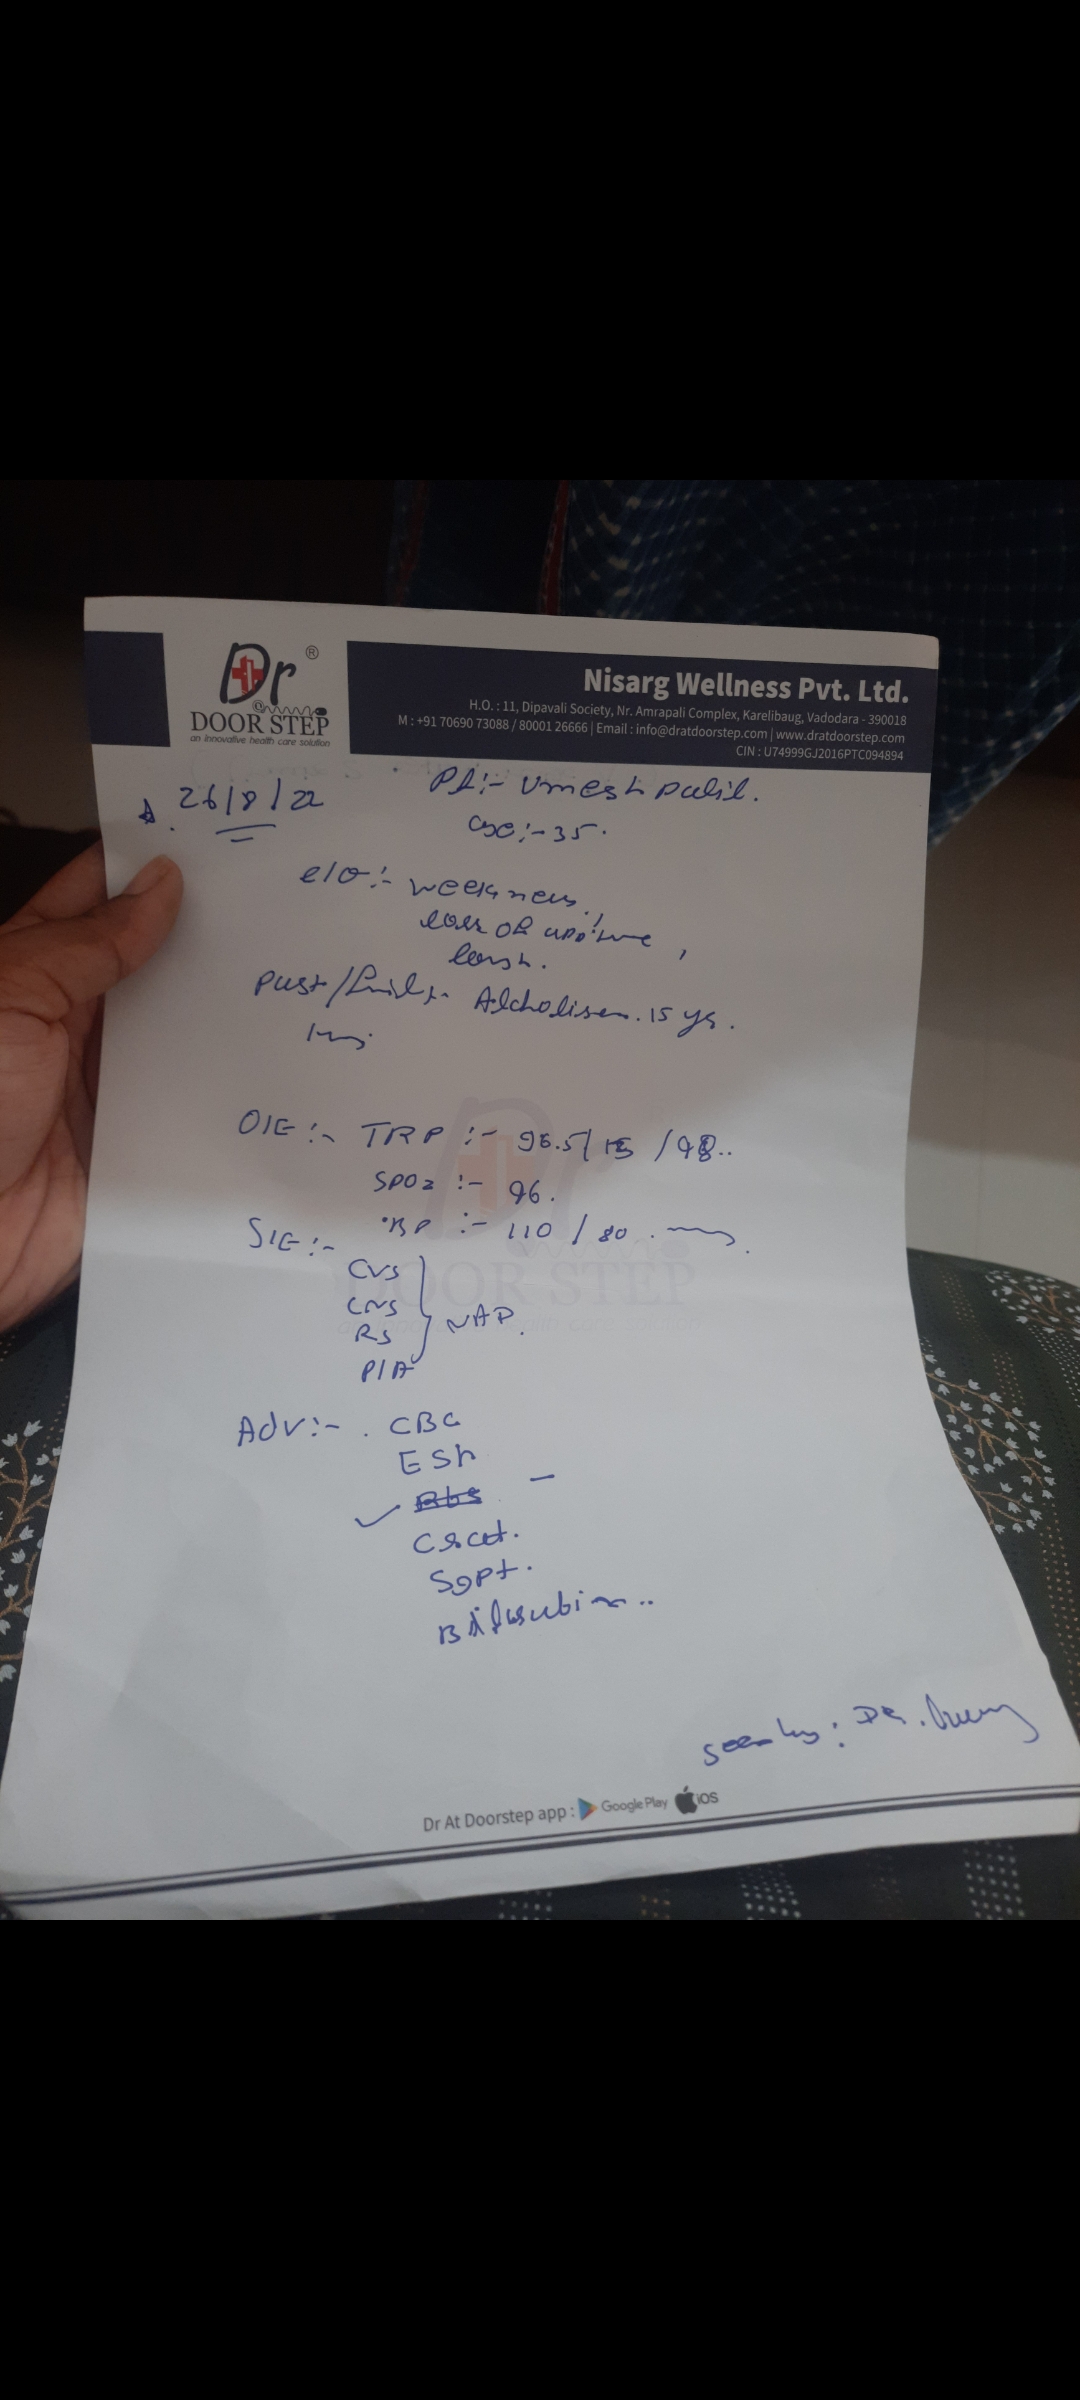 Dr ®
DOOR STEP
an innovative health care solution
Nisarg Wellness Pvt. Ltd.
H.O. : 11, Dipavali Society, Nr. Amrapali Complex, Karelibaug, Vadodara - 390018
M : +91 70690 73088 / 80001 26666 | Email : info@dratdoorstep.com | www.dratdoorstep.com
CIN : U74999GJ2016PTC094894
26/8/22
Pt:- Umesh Patil.
age:- 35.
c/o:- weekness,
loss of appetite,
Past/
Alcholism. 15 ys.
O/E :- TRP :- 96.5/ /98..
SPO2 :- 96.
BP :- 110 / 80
S/E :-
CVS
CNS
RS
P/A
NAD.
Adv:- . CBC
ESR
Rbs
Creat.
Sgpt.
Billirubin..
seen by: DR.
DOOR STEP
Dr At Doorstep app : Google Play iOS